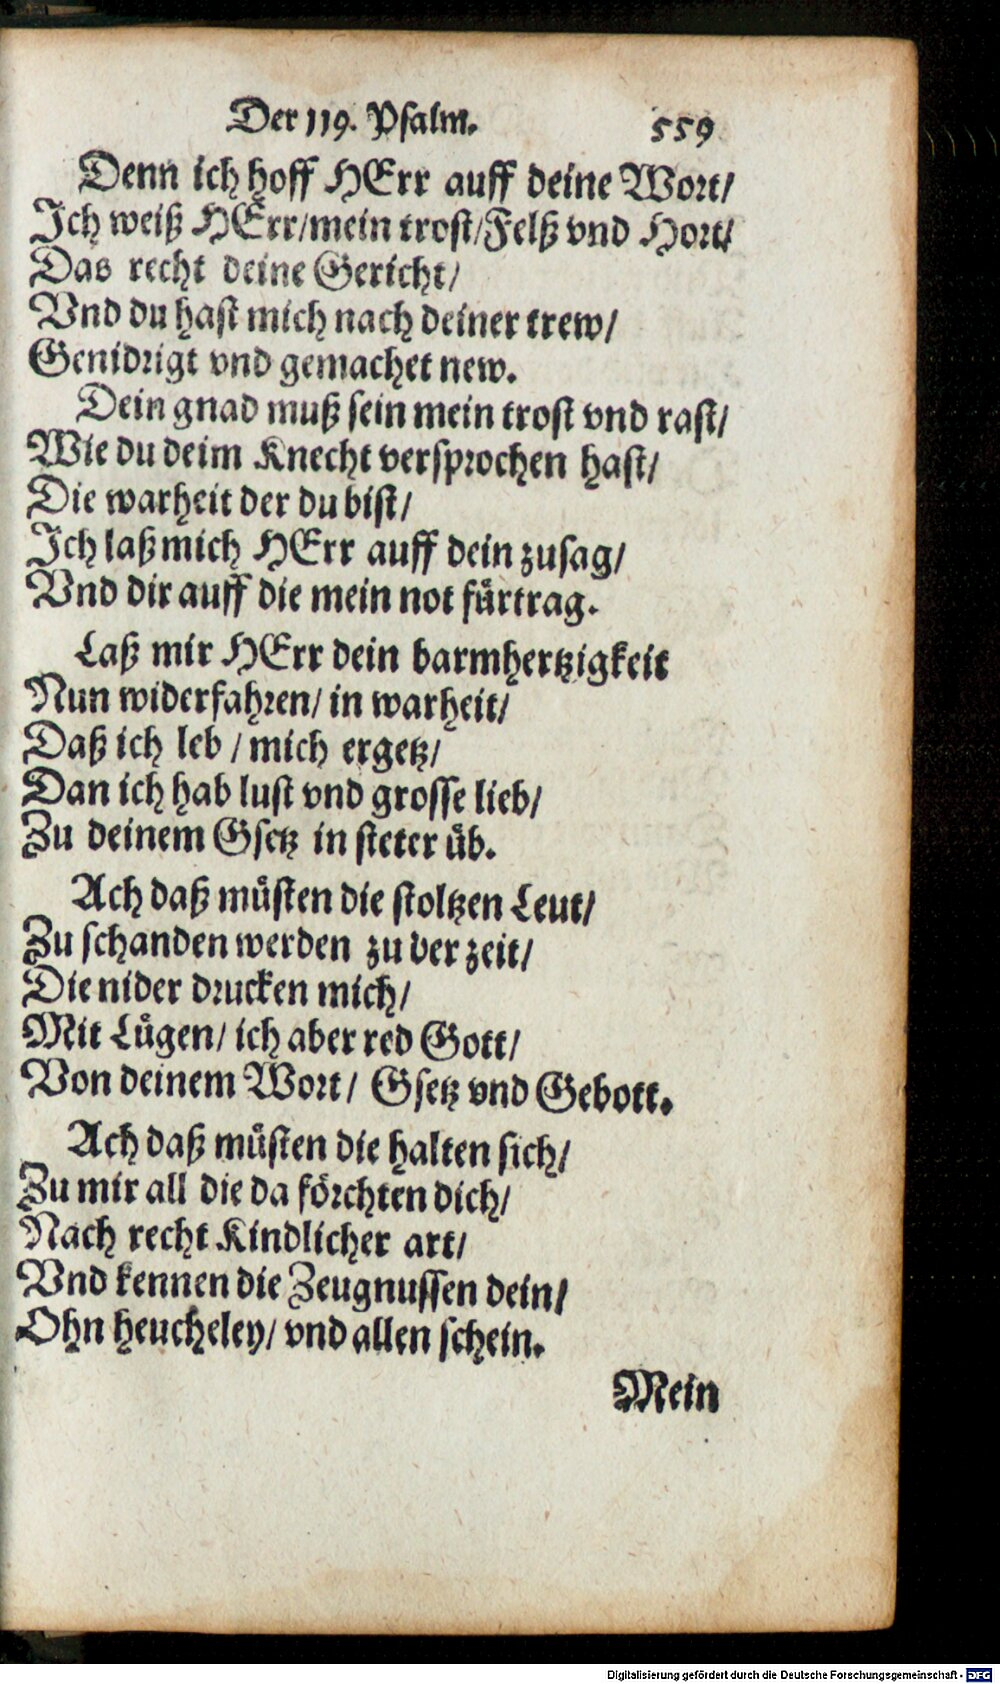 Der 119. Psalm. 559
Denn ich hoff HErr auff deine Wort/
Ich weiß HErr/mein trost/Felß vnd Hort/
Das recht deine Gericht/
Vnd du hast mich nach deiner trew/
Genidrigt vnd gemachet new.
Dein gnad muß sein mein trost vnd rast/
Wie du deim Knecht versprochen hast/
Die warheit der du bist/
Ich laß mich HErr auff dein zusag/
Vnd dir auff die mein not fürtrag.
Laß mir HErr dein barmhertzigkeit
Nun widerfahren/ in warheit/
Daß ich leb / mich ergetz/
Dan ich hab lust vnd grosse lieb/
Zu deinem Gsetz in steter üb.
Ach daß müsten die stoltzen Leut/
Zu schanden werden zu der zeit/
Die nider drucken mich/
Mit Lügen/ ich aber red Gott/
Von deinem Wort/ Gsetz vnd Gebott.
Ach daß müsten die halten sich/
Zu mir all die da förchten dich/
Nach recht Kindlicher art/
Vnd kennen die Zeugnussen dein/
Ohn heucheley/ vnd allen schein.
Mein
Digitalisierung gefördert durch die Deutsche Forschungsgemeinschaft - DFG